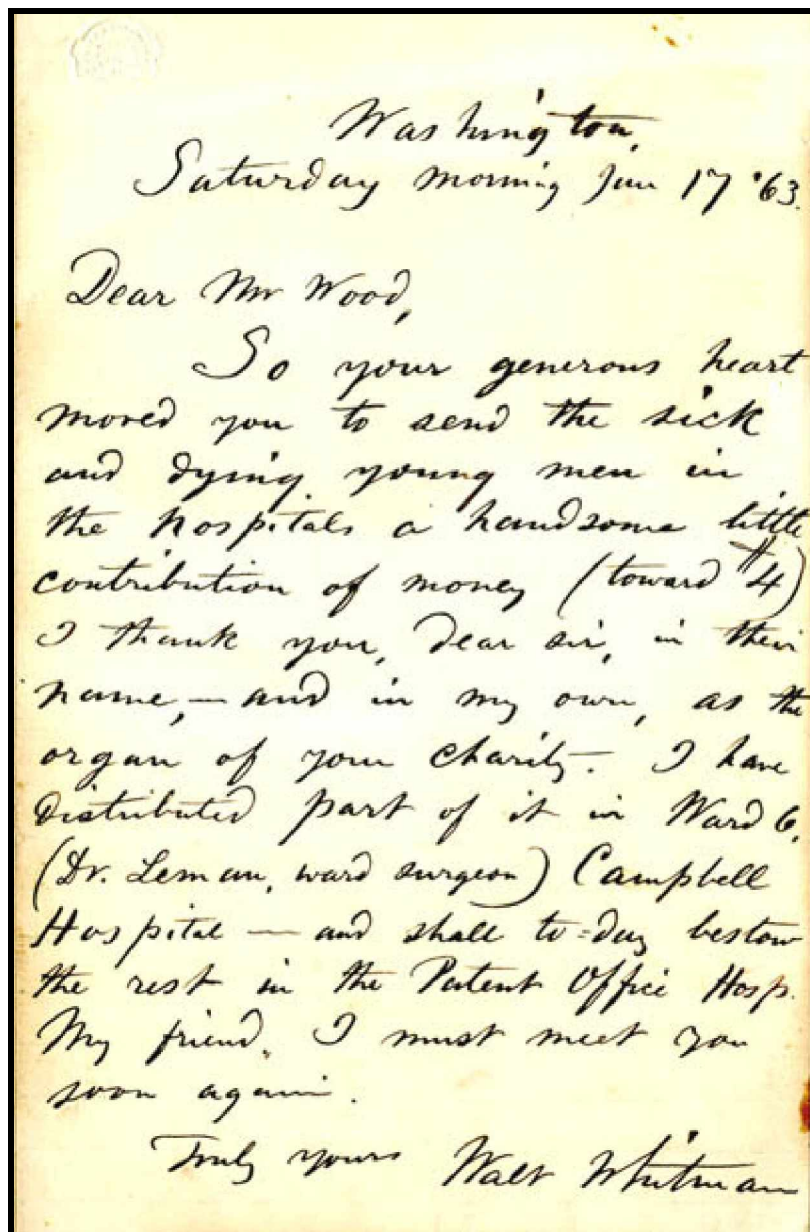 Washington,
Saturday morning Jan 17 '63.
Dear Mr Wood,
So your generous heart
moved you to send the sick
and dying young men in
the hospitals a handsome little
contribution of money (toward $4)
I thank you, dear sir, in their
name,—and in my own, as the
organ of your charity. I have
distributed part of it in Ward 6,
(Dr. Leman, ward surgeon) Campbell
Hospital — and shall to-day bestow
the rest in the Patent Office Hosp.
My friend, I must meet you
soon again.
Truly yours Walt Whitman